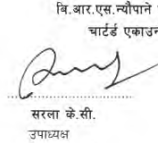 बि.आर.एस.न्यौपाने
चार्टर्ड
सरला के.सी.
उपाध्यक्ष